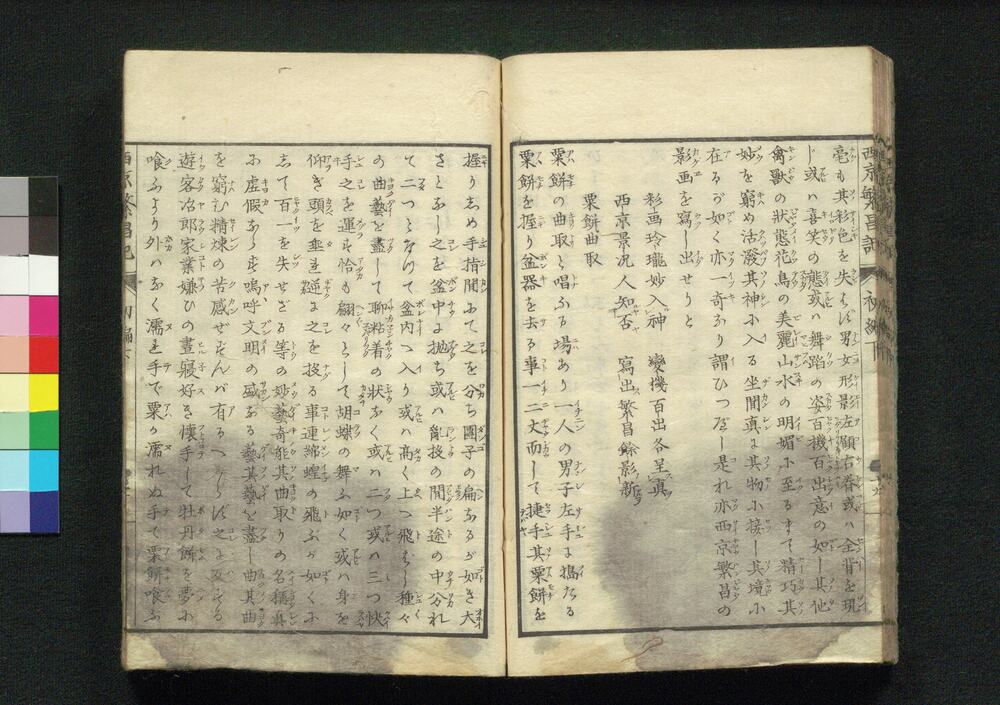 西京繁昌記 初編下
毫も其彩色を失はず男女形影左顧右眷或ハ全背を現
じ或ハ喜笑の態或ハ舞踏の姿百機百出意の如し其他
禽獣の狀態花鳥の美麗山水の明媚に至るまで精巧其
妙を窮め活潑其神に入る坐間真に其物に接し其境に
在るが如く亦一奇なり謂ひつべし是れ亦西京繁昌の
影画を寫し出せりと
彩画玲瓏妙入神 變機百出各呈真
西京景况人知否 寫出繁昌餘影新
粟餅曲取
粟餅の曲取と唱ふる場あり一人の男子左手に搗たる
粟餅を握り盆器を去る事一二丈而して捷手其粟餅を
握りしめ手指間にて之を分ち團子の扁なるが如き大
さとなし之を盆中に抛ち或ハ亂投の間半途の中分れ
て二つとなけて盆内へ入り或ハ高く上へ飛ばし種々
の曲藝を盡して聊粘着の狀なく或ハ二つ或ハ三つ快
手之を運らす恰も翩々として胡蝶の舞ふ如く或ハ身を
仰ぎ頭を垂れ逆に之を投る事連綿蝗の飛ぶが如くに
して百一を失せざる等の妙藝奇能其曲取りの名稱真
に虚假ならず嗚呼文明の盛なる藝其藝を盡し曲其曲
を窮む精煉の苦感ぜずんバ有るべからず之に反する
遊客冶郎家業嫌ひの晝寢好き懐手して牡丹餅を夢に
喰ふより外ハなく濡れ手で粟か濡れぬ手で粟餅喰ふ
西京繁昌記 初編下